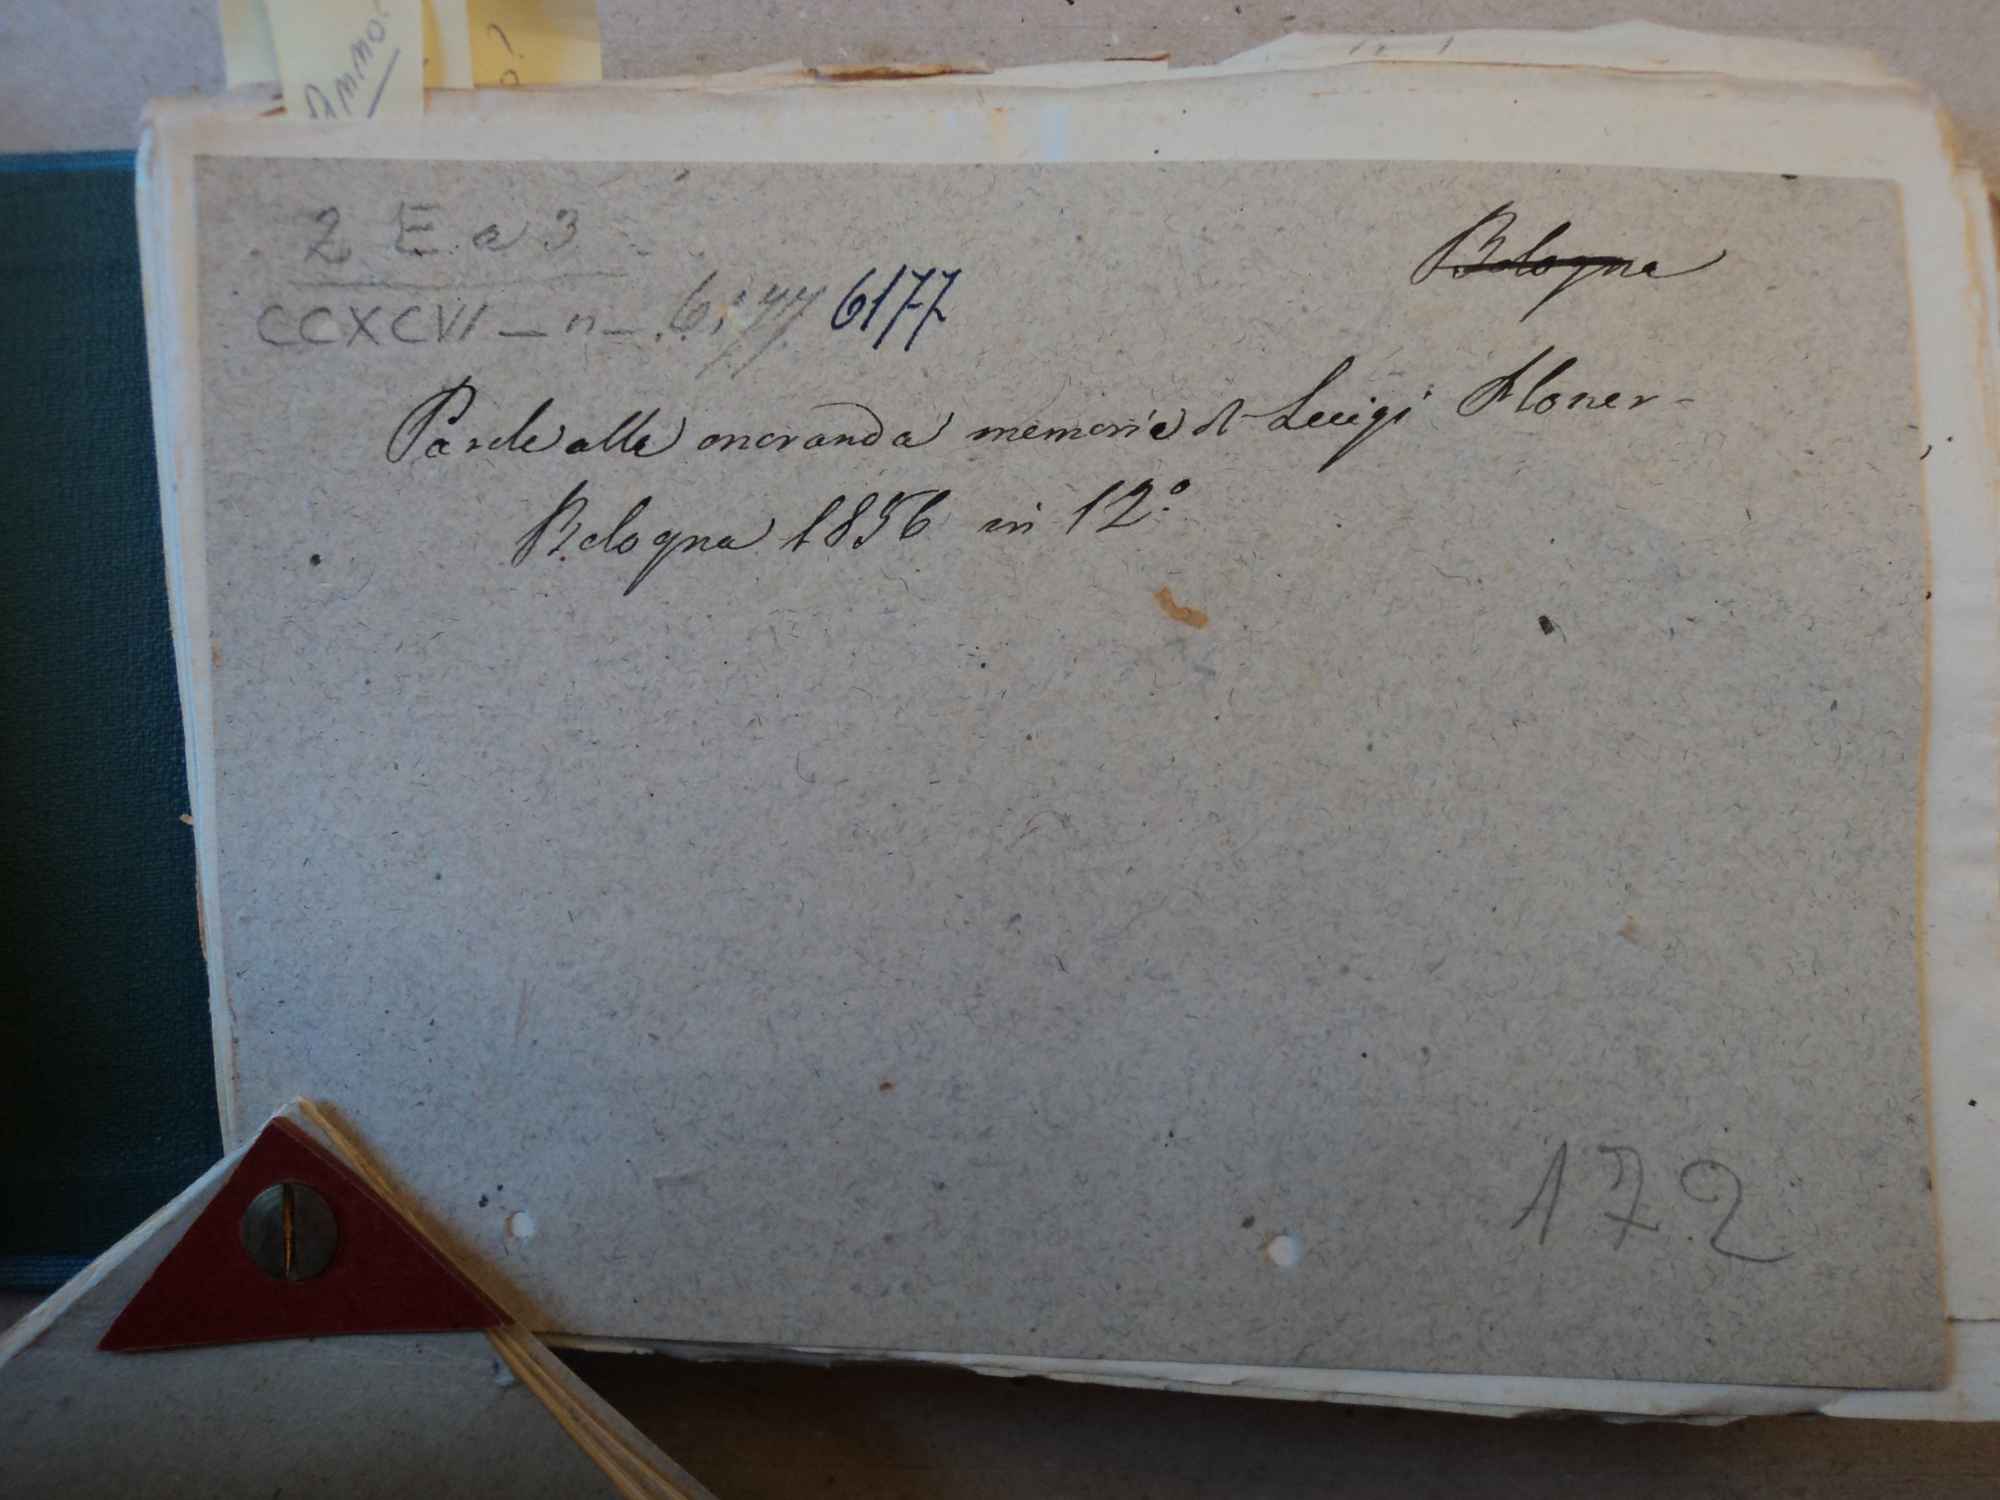 Anno.
o?
2 E a 3
Bologna
CCXCVI - n - 6177 6177
Parole alla onoranda memoria di Luigi Floner-
Bologna 1856 in 12.º
172